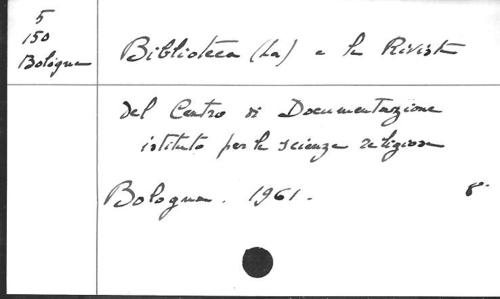 5
150
Bologna
Biblioteca (La) e le Riviste
del Centro di Documentazione
istituto per le scienze religiose
Bologna. 1961.
8°